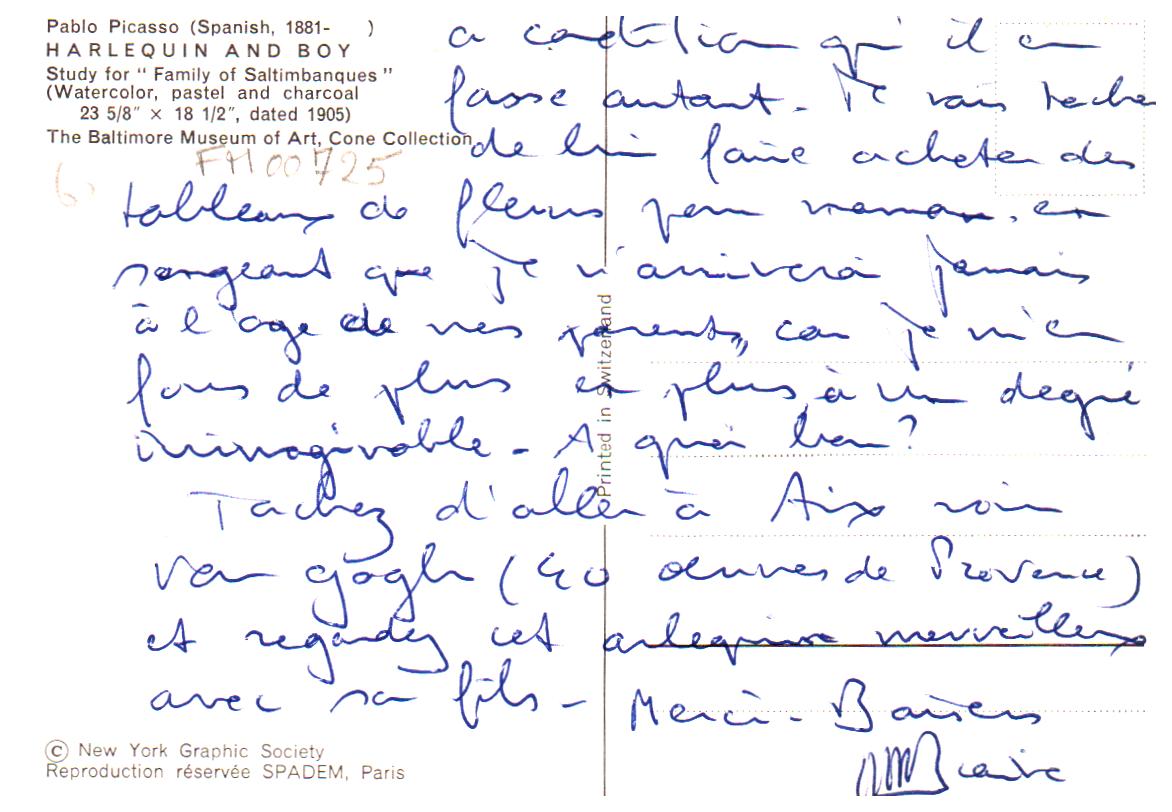 Pablo Picasso (Spanish, 1881- )
HARLEQUIN AND BOY
Study for " Family of Saltimbanques "
(Watercolor, pastel and charcoal
23 5/8" × 18 1/2", dated 1905)
The Baltimore Museum of Art, Cone Collection
FM00725
a condition qu'il en
fasse autant - Je vais tacher
de lui faire acheter des
tableaux de fleurs pour maman, en
songeant que je n'arriverai jamais
à l'age de nos parents, car je m'en
fous de plus en plus, à un degré
inimaginable - A quoi bon?
Tachez d'aller à Aix voir
Van Gogh (40 œuvres de Provence)
et regardez cet arlequin merveilleux
avec son fils - Merci - Baisers
Printed in Switzerland
© New York Graphic Society
Reproduction réservée SPADEM, Paris